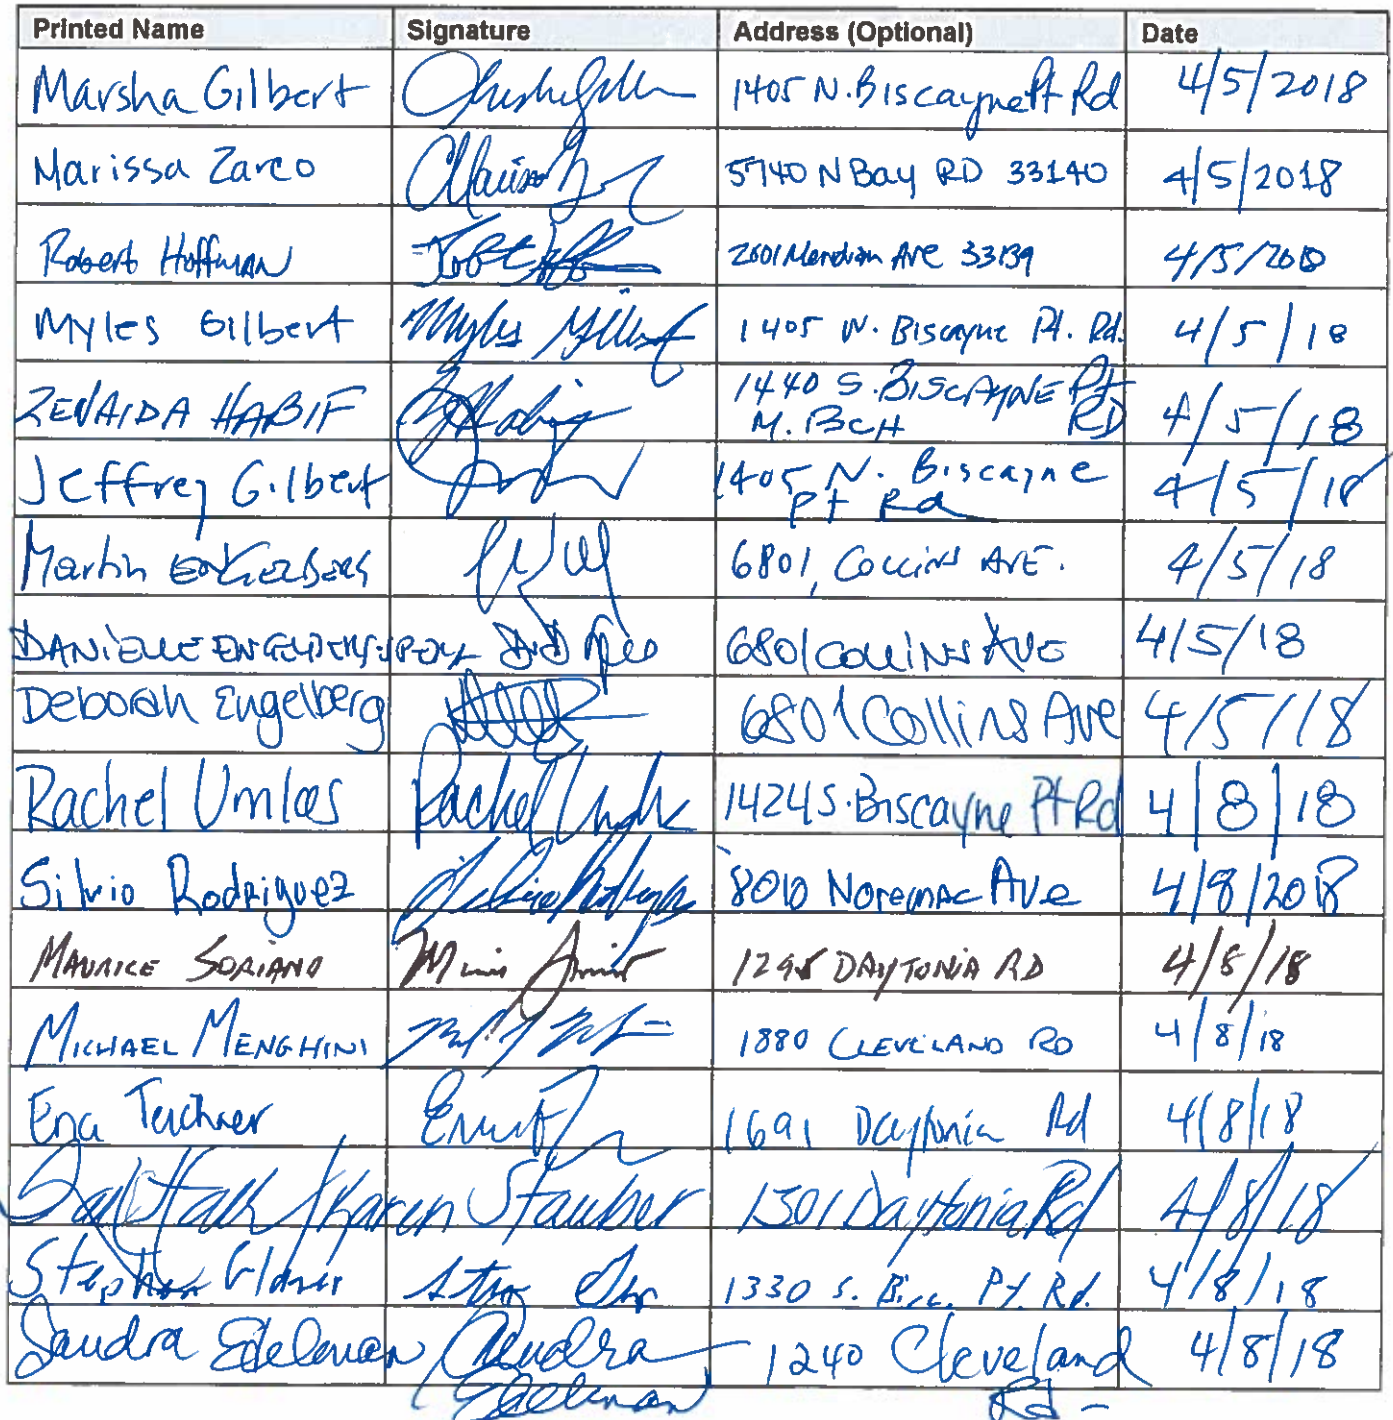 Printed Name Signature Address (Optional) Date
Marsha Gilbert 1405 N. Biscayne Pt Rd 4/5/2018
Marissa Zarco 5740 N Bay RD 33140 4/5/2018
Robert Hoffman 2601 Meridian Ave 33139 4/5/2018
Myles Gilbert Myles Gilbert 1405 N. Biscayne Pt. Rd. 4/5/18
ZENAIDA HABIF 1440 S. BISCAYNE Pt
M. BCH RD 4/5/18
Jeffrey Gilbert 1405 N. Biscayne
Pt Rd 4/5/18
Martin 6801 COLLINS AVE. 4/5/18
DANIELLE 6801 COLLINS AVE 4/5/18
Deborah Engelberg 6801 Collins Ave 4/5/18
Rachel Umlas Rachel Umlas 1424 S. Biscayne Pt Rd 4/8/18
Silvio Rodriguez Silvio Rodriguez 8010 Noremac Ave 4/8/2018
MAURICE SORIANO DAYTONIA RD 4/8/18
MICHAEL MENGHINI 1880 CLEVELAND RD 4/8/18
Ena 1691 Daytonia Rd 4/8/18
Karen Stauber 1301 Daytonia Rd 4/8/18
Stephen 1330 S. Bisc. Pt. Rd. 4/8/18
Sandra Edelman Sandra 1240 Cleveland 4/8/18
Edelman Rd -